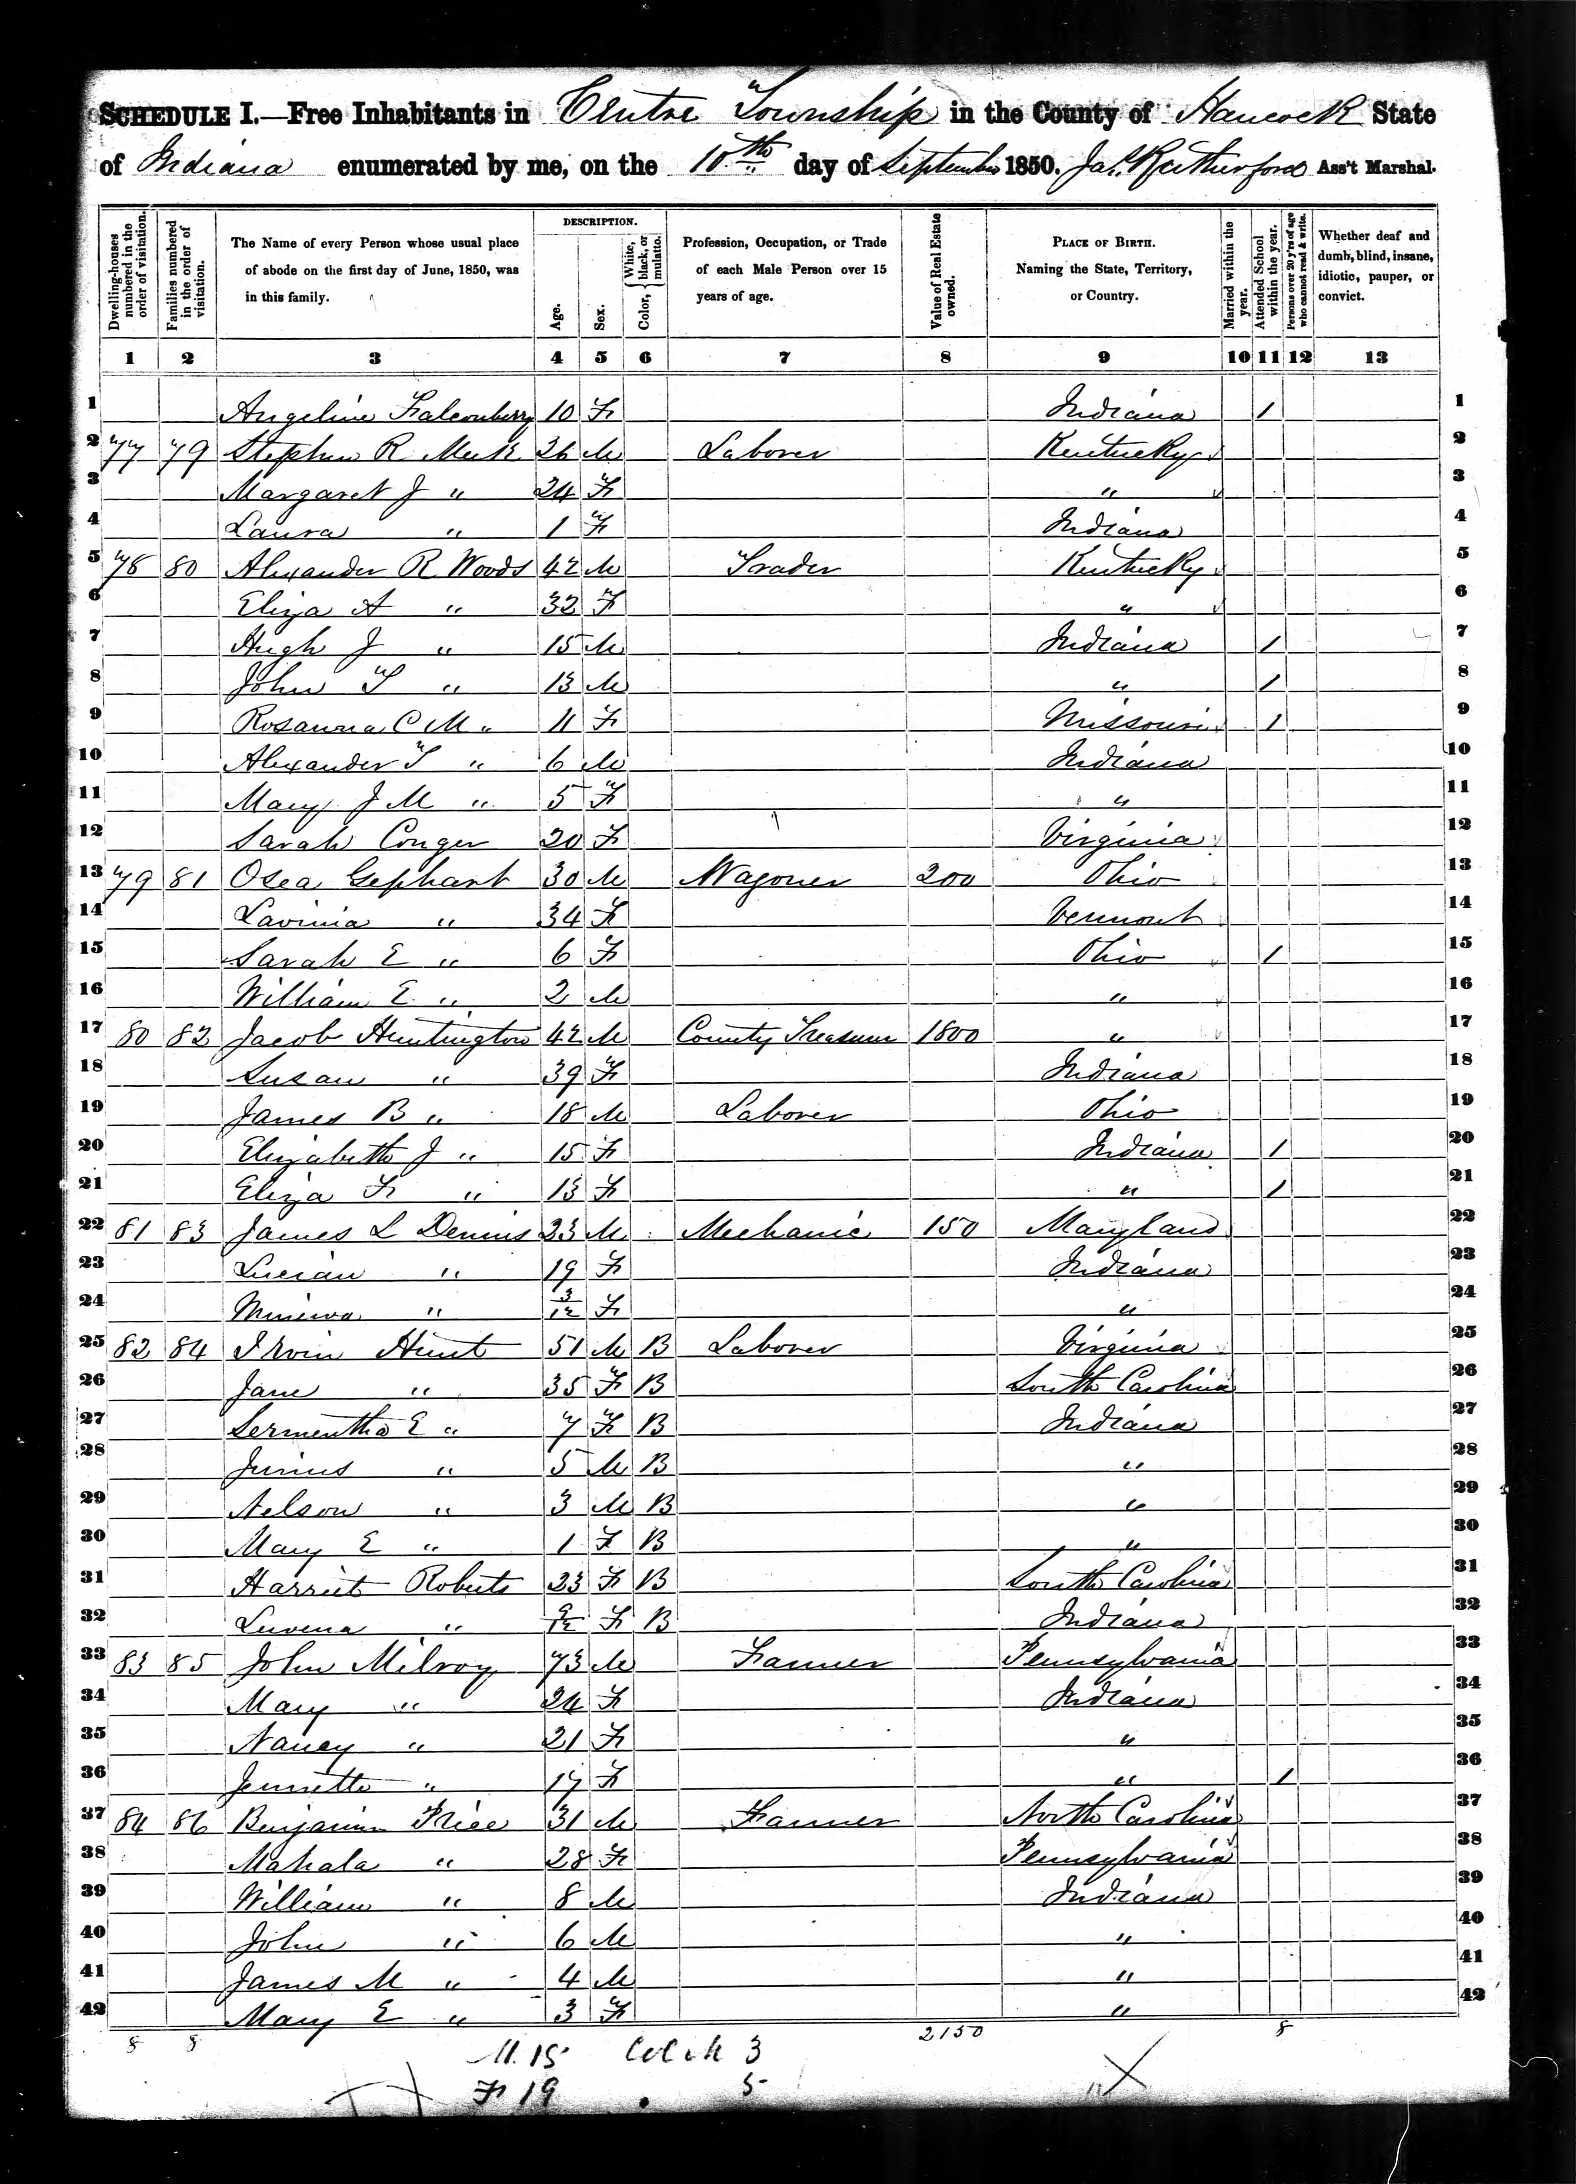 SCHEDULE I.—Free Inhabitants in Centre Township in the County of Hancock State
of Indiana enumerated by me, on the 10th day of September 1850. Jas. Rutherford Ass't Marshal.
Dwelling-houses numbered in the order of visitation.
Families numbered in the order of visitation.
The Name of every Person whose usual place of abode on the first day of June, 1850, was in this family.
DESCRIPTION.
Age.
Sex.
Color, { White, black, or mulatto.
Profession, Occupation, or Trade of each Male Person over 15 years of age.
Value of Real Estate owned.
PLACE OF BIRTH. Naming the State, Territory, or Country.
Married within the year.
Attended School within the year.
Persons over 20 y'rs of age who cannot read & write.
Whether deaf and dumb, blind, insane, idiotic, pauper, or convict.
1 2 3 4 5 6 7 8 9 10 11 12 13
1 Angeline Falconberry 10 F Indiana 1 1
2 77 79 Stephen R Meek 26 M Laborer Kentucky 2
3 Margaret J " 24 F " 3
4 Laura " 1 F Indiana 4
5 78 80 Alexander R Woods 42 M Trader Kentucky 5
6 Eliza A " 32 F " 6
7 Hugh J " 15 M Indiana 1 7
8 John T " 13 M " 1 8
9 Rosanna C M " 11 F Missouri 1 9
10 Alexander T " 6 M Indiana 10
11 Mary J M " 5 F " 11
12 Sarah Conger 20 F Virginia 12
13 79 81 Osea Gephart 30 M Wagoner 200 Ohio 13
14 Lavinia " 34 F Vermont 14
15 Sarah E " 6 F Ohio 1 15
16 William E " 2 M " 16
17 80 82 Jacob Huntington 42 M County Treasurer 1800 " 17
18 Susan " 39 F Indiana 18
19 James B " 18 M Laborer Ohio 19
20 Elizabeth J " 15 F Indiana 1 20
21 Eliza F " 13 F " 1 21
22 81 83 James L Dennis 23 M Mechanic 150 Maryland 22
23 Lucian " 19 F Indiana 23
24 Minerva " 3/12 F " 24
25 82 84 Irvin Hunt 51 M B Laborer Virginia 25
26 Jane " 35 F B South Carolina 26
27 Sermentha E " 7 F B Indiana 27
28 Junius " 5 M B " 28
29 Nelson " 3 M B " 29
30 Mary E " 1 F B " 30
31 Harriet Roberts 23 F B South Carolina 31
32 Luvena " 9/12 F B Indiana 32
33 83 85 John Milroy 73 M Farmer Pennsylvania 33
34 Mary " 24 F Indiana 34
35 Nancy " 21 F " 35
36 Jennette " 17 F " 1 36
37 84 86 Benjamin Price 31 M Farmer North Carolina 37
38 Mahala " 28 F Pennsylvania 38
39 William " 8 M Indiana 39
40 John " 6 M " 40
41 James M " 4 M " 41
42 Mary E " 3 F " 42
8 8 2150 8
M. 15 Col M 3
F 19 5